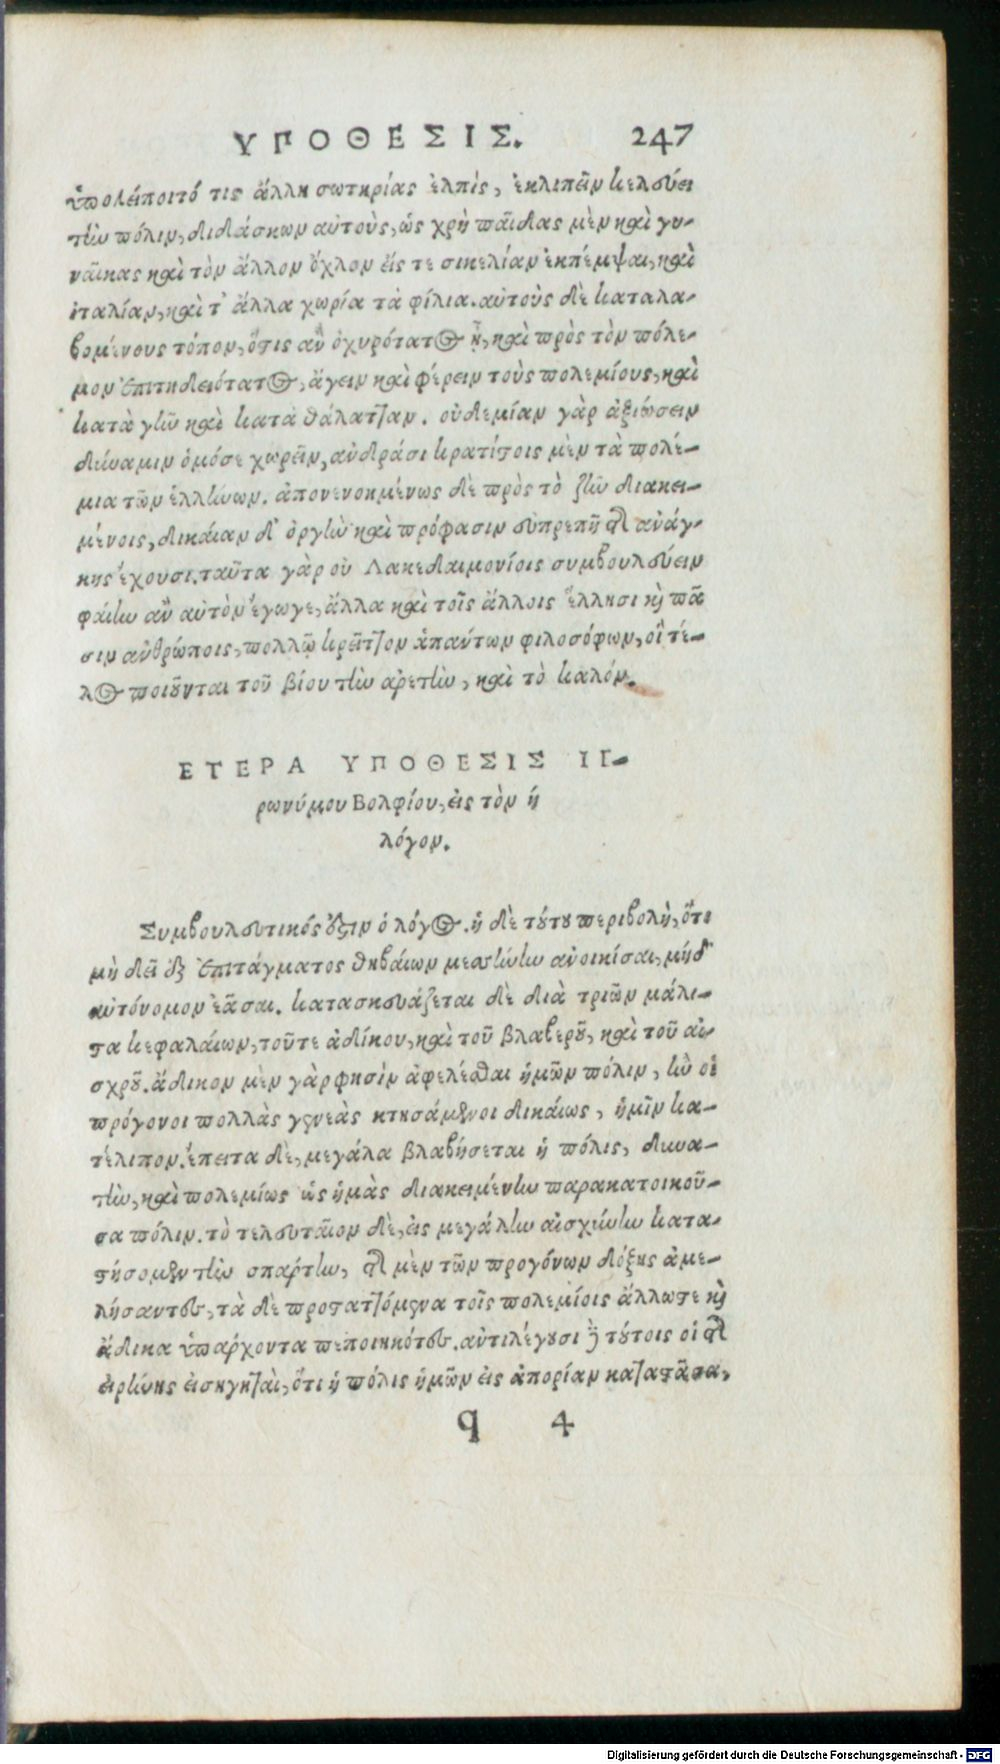 ΥΠΟΘΕΣΙΣ. 247
ὑπολείποιτό τις ἄλλη σωτηρίας ἐλπὶς, ἐκλιπεῖν κελεύει
τὴν πόλιν, διδάσκων αὐτοὺς, ὡς χρὴ παῖδας μὲν καὶ γυ-
ναῖκας καὶ τὸν ἄλλον ὄχλον εἴς τε σικελίαν ἐκπέμψαι, καὶ
ἰταλίαν, καὶ τ' ἄλλα χωρία τὰ φίλια. αὐτοὺς δὲ καταλα-
βομένους τόπον, ὅστις ἂν ὀχυρότατος ᾖ, καὶ πρὸς τὸν πόλε-
μον ἐπιτηδειότατος, ἄγειν καὶ φέρειν τοὺς πολεμίους, καὶ
κατὰ γῆν καὶ κατὰ θάλατταν. οὐδεμίαν γὰρ ἀξιώσειν
δύναμιν ὁμόσε χωρεῖν, ἀνδράσι κρατίστοις μὲν τὰ πολέ-
μια τῶν ἑλλήνων. ἀπονενοημένως δὲ πρὸς τὸ ζῆν διακει-
μένοις, δικαίαν δ' ὀργὴν καὶ πρόφασιν εὐπρεπῆ τῆς ἀνάγ-
κης ἔχουσι. ταῦτα γὰρ οὐ Λακεδαιμονίοις συμβουλεύειν
φαίην ἂν αὐτὸν ἔγωγε, ἀλλὰ καὶ τοῖς ἄλλοις ἕλλησι καὶ πᾶ
σιν ἀνθρώποις, πολλῷ κρεῖττον ἁπάντων φιλοσόφων, οἳ τέ-
λος ποιοῦνται τοῦ βίου τὴν ἀρετὴν, καὶ τὸ καλόν.
ΕΤΕΡΑ ΥΠΟΘΕΣΙΣ ΙΕ-
ρωνύμου Βολφίου, εἰς τὸν ἡ
λόγον.
Συμβουλευτικός ἐστιν ὁ λόγος. ἡ δὲ τούτου περιβολὴ, ὅτι
μὴ δεῖ ἐξ ἐπιτάγματος θηβαίων μεσήνην ἀνοικίσαι, μήδ'
αὐτόνομον ἐᾶσαι. κατασκευάζεται δὲ διὰ τριῶν μάλι-
στα κεφαλαίων, τοῦτε ἀδίκου, καὶ τοῦ βλαβεροῦ, καὶ τοῦ αἰ-
σχροῦ. ἄδικον μὲν γὰρ φησὶν ἀφελέσθαι ἡμῶν πόλιν, ἣν οἱ
πρόγονοι πολλὰς γενεὰς κτησάμενοι δικαίως, ἡμῖν κα-
τέλιπον. ἔπειτα δὲ, μεγάλα βλαβήσεται ἡ πόλις, δυνα-
τὴν, καὶ πολεμίως ὡς ἡμᾶς διακειμένην παρακατοικοῦ-
σα πόλιν. τὸ τελευταῖον δὲ, εἰς μεγάλην αἰσχύνην κατα-
στήσομεν τὴν σπάρτην, τῆς μὲν τῶν προγόνων δόξης ἀμε-
λήσαντες, τὰ δὲ προστατόμενα τοῖς πολεμίοις ἄλλωστε καὶ
ἄδικα ὑπάρχοντα πεποιηκότες. ἀντιλέγουσι δὲ τούτοις οἱ τῆς
εἰρήνης εἰσηγηταὶ, ὅτι ἡ πόλις ἡμῶν εἰς ἀπορίαν καταστᾶσα,
q 4
Digitalisierung gefördert durch die Deutsche Forschungsgemeinschaft - DFG